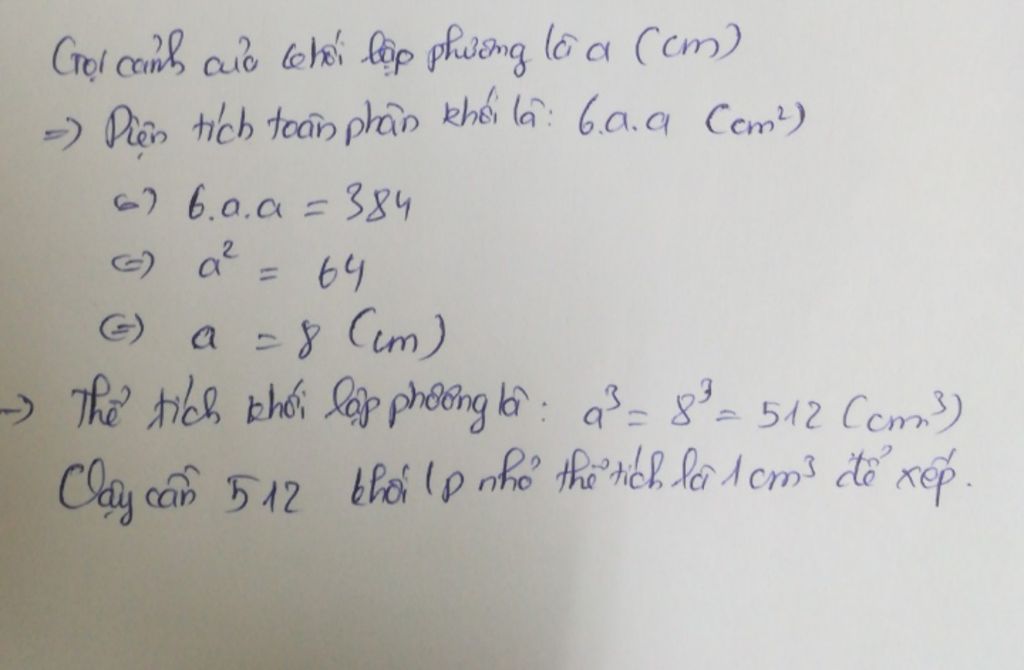 Gọi cảnh của khối lập phương là a (cm)
=> Diện tích toàn phần khối là: 6.a.a (cm²)
<=> 6.a.a = 384
<=> a² = 64
<=> a = 8 (cm)
-> Thể tích khối lập phương là: a³ = 8³ = 512 (cm³)
Vậy cần 512 khối lp nhỏ thể tích là 1 cm³ để xếp.